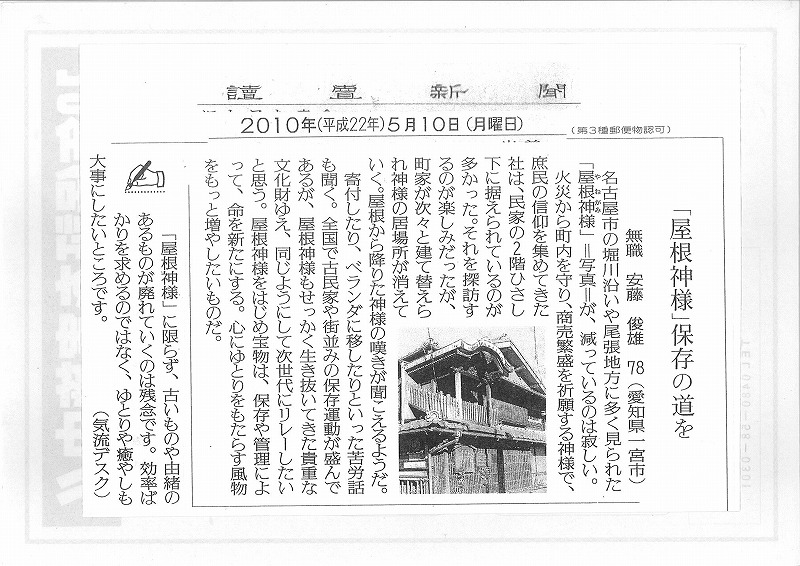 讀賣新聞
2010年(平成22年)5月10日(月曜日)
(第3種郵便物認可)
「屋根神様」保存の道を
無職 安藤 俊雄 78(愛知県一宮市)
名古屋市の堀川沿いや尾張地方に多く見られた
「屋根神様」=写真=が、減っているのは寂しい。
やねがみ
火災から町内を守り、商売繁盛を祈願する神様で、
庶民の信仰を集めてきた
社は、民家の2階ひさし
下に据えられているのが
多かった。それを探訪す
るのが楽しみだったが、
町家が次々と建て替えら
れ神様の居場所が消えて
いく。屋根から降りた神様の嘆きが聞こえるようだ。
寄付したり、ベランダに移したりといった苦労話
も聞く。全国で古民家や街並みの保存運動が盛んで
あるが、屋根神様もせっかく生き抜いてきた貴重な
文化財ゆえ、同じようにして次世代にリレーしたい
と思う。屋根神様をはじめ宝物は、保存や管理によ
って、命を新たにする。心にゆとりをもたらす風物
をもっと増やしたいものだ。
「屋根神様」に限らず、古いものや由緒の
あるものが廃れていくのは残念です。効率ば
かりを求めるのではなく、ゆとりや癒やしも
大事にしたいところです。 (気流デスク)